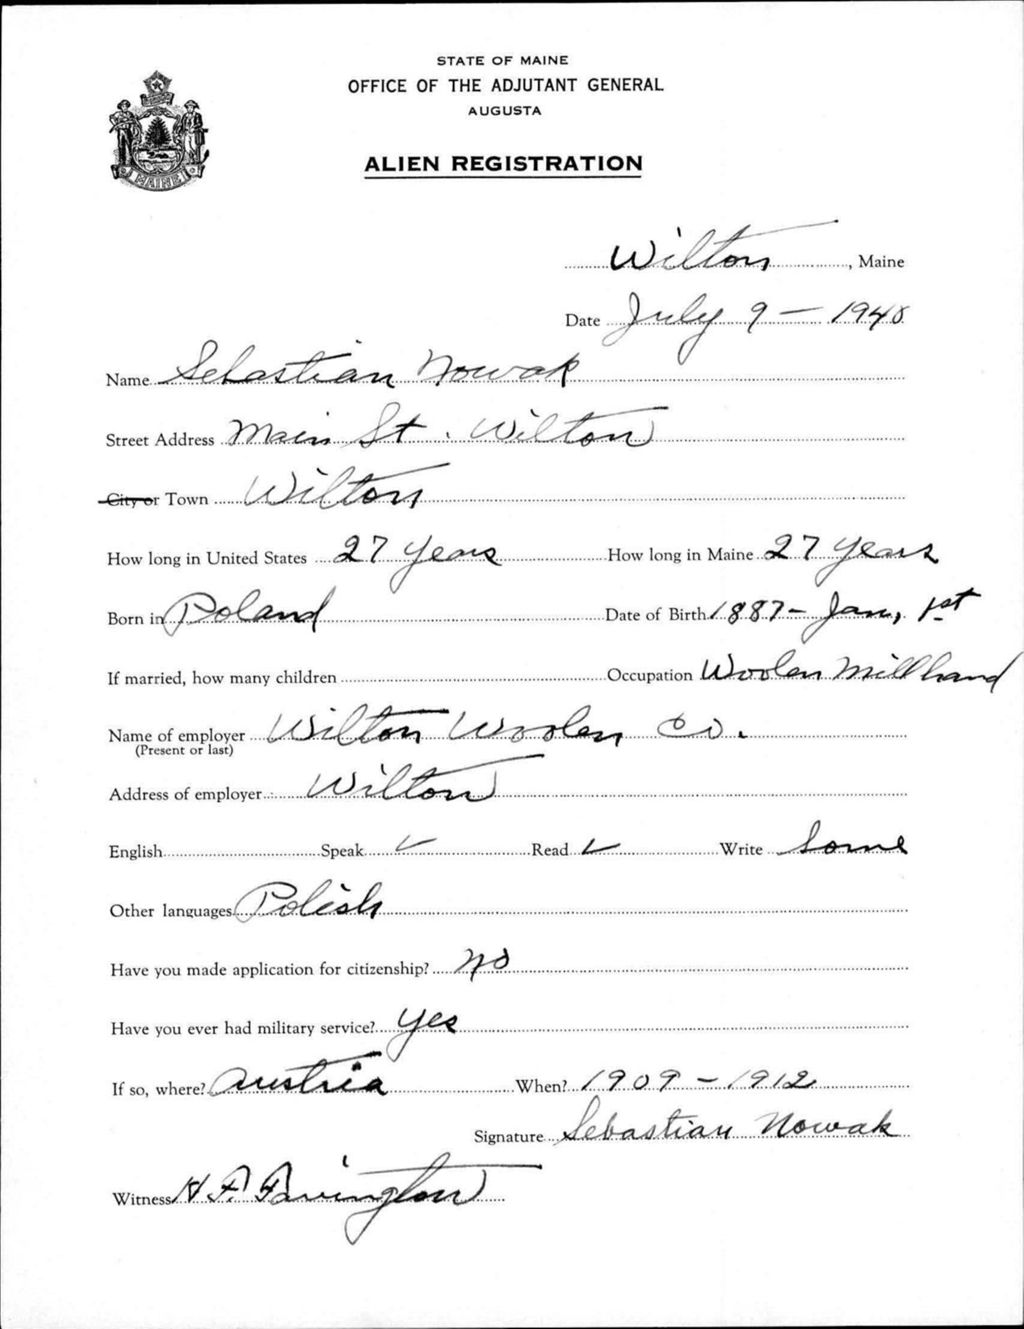 STATE OF MAINE
OFFICE OF THE ADJUTANT GENERAL
AUGUSTA
ALIEN REGISTRATION
MAINE
Wilton, Maine
Date July 9 - 1940
Name Sebastian Nowak
Street Address Main St. Wilton
City or Town Wilton
How long in United States 27 years How long in Maine 27 years
Born in Poland Date of Birth 1887 - Jan, 1st
If married, how many children Occupation Woolen Mill hand
Name of employer Wilton Woolen Co.
(Present or last)
Address of employer Wilton
English Speak ✓ Read ✓ Write Some
Other languages Polish
Have you made application for citizenship? no
Have you ever had military service? yes
If so, where? Austria When? 1909 - 1912
Signature Sebastian Nowak
Witness H. F.